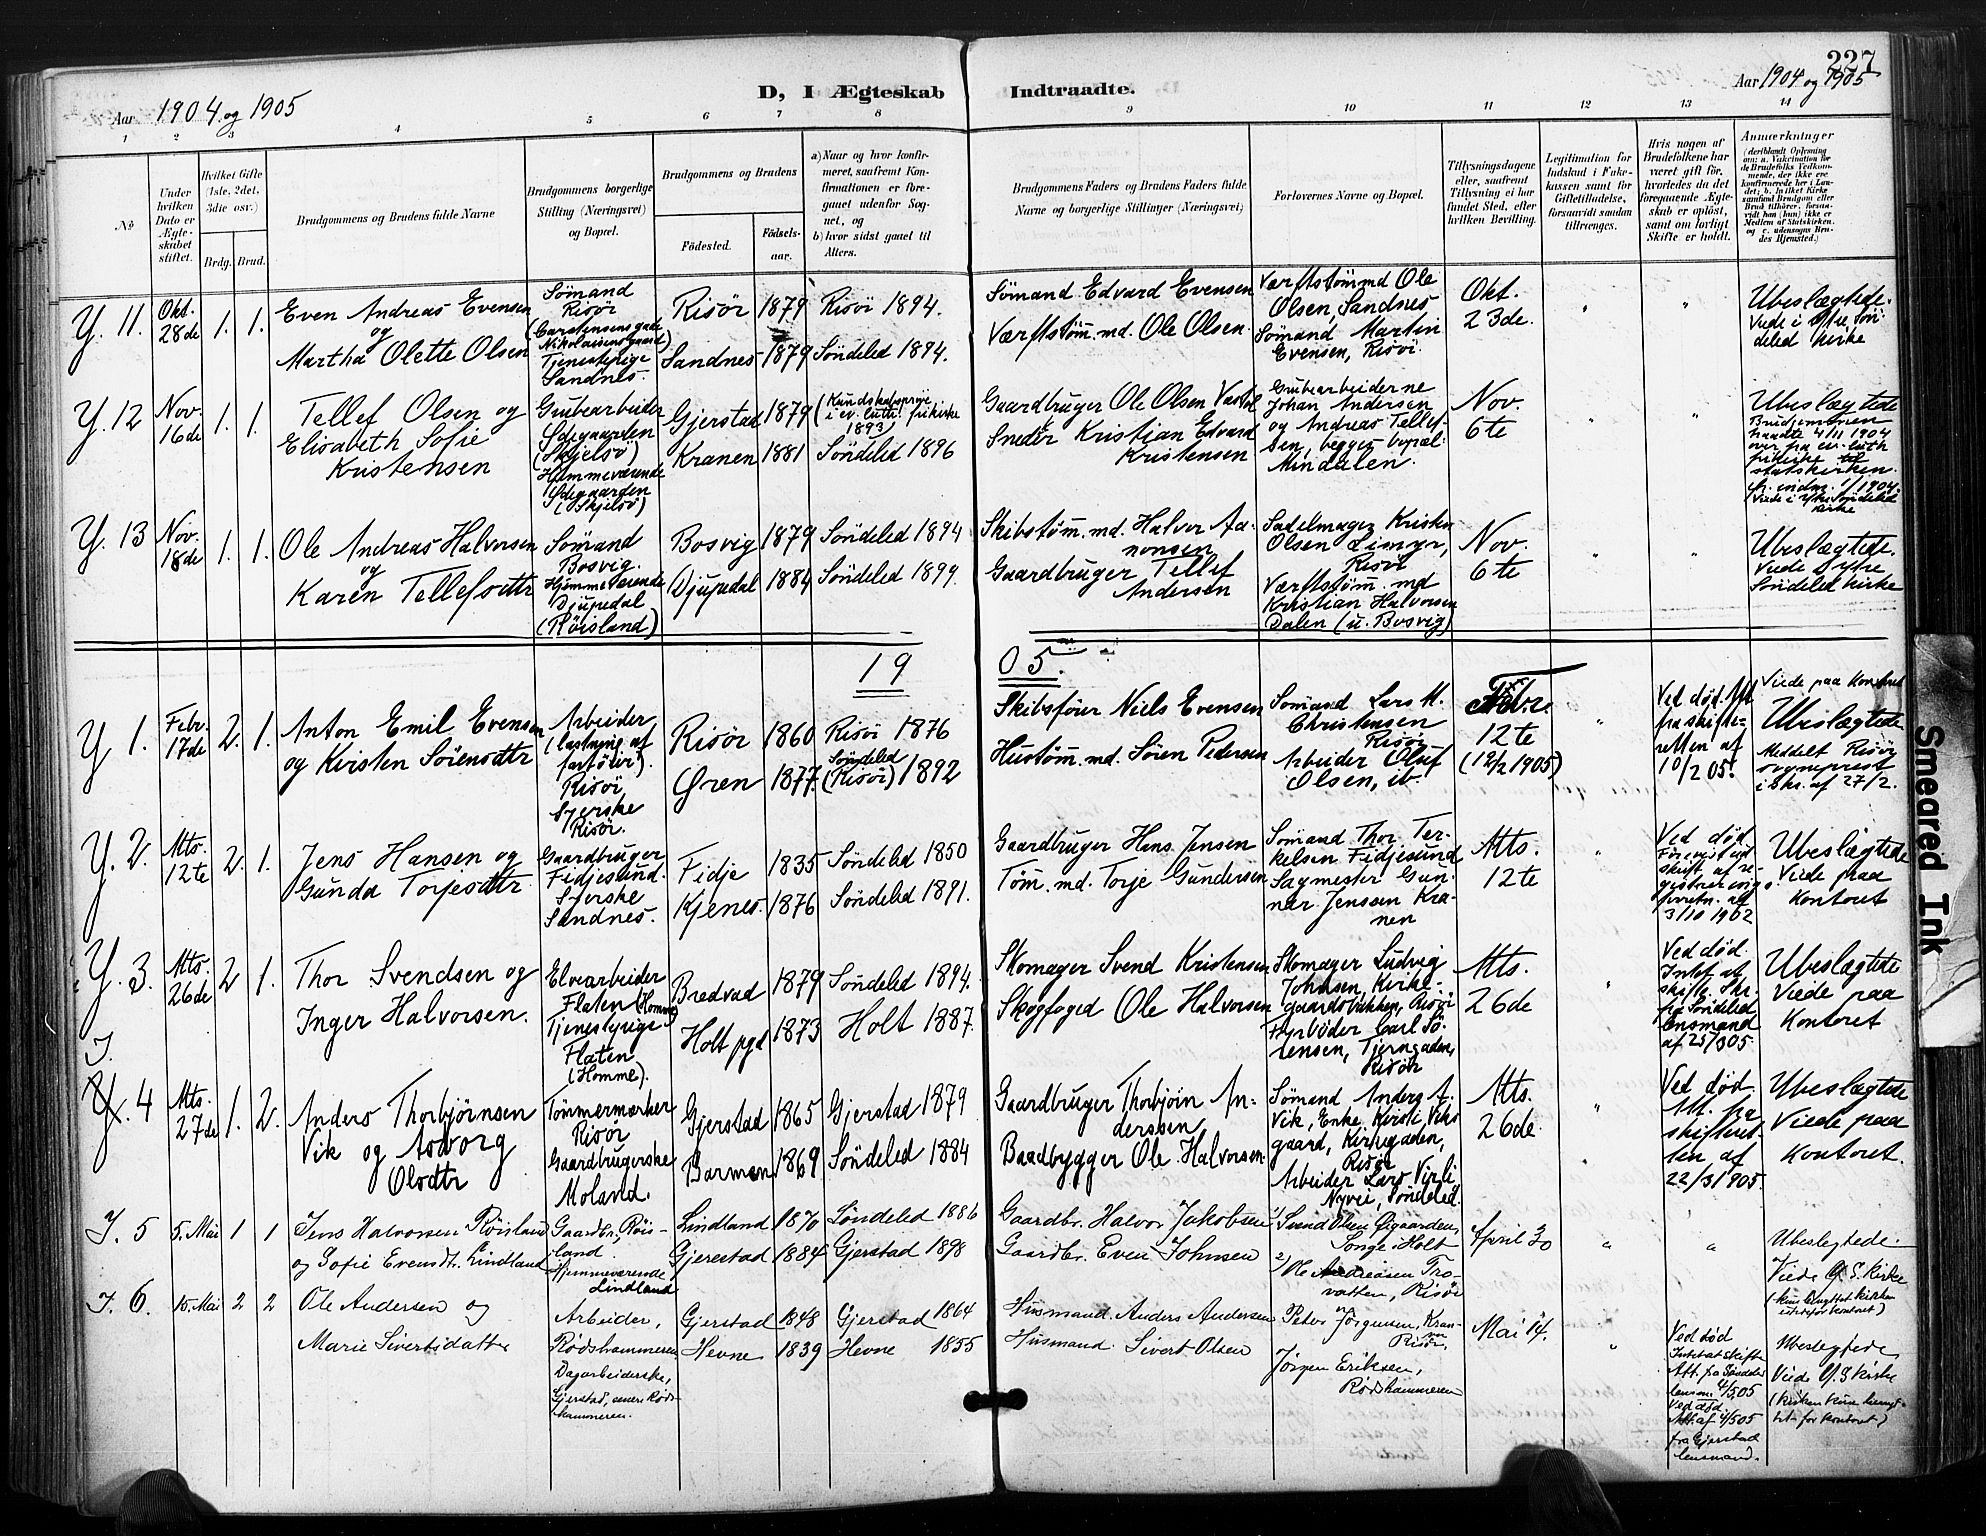 227
Aar 1904 og 1905
D, I Ægteskab Indtraadte.
Aar 1904 og 1905
1 2 3 4 5 6 7 8 9 10 11 12 13 14
№
Under hvilken Dato er Ægteskabet stiftet.
Hvilket Gifte (1ste, 2det, 3die osv.)
Brdg. Brud.
Brudgommens og Brudens fulde Navne
Brudgommens borgerlige Stilling (Næringsvei) og Bopæl.
Brudgommens og Brudens
Fødested.
Fødselsaar.
a) Naar og hvor konfirmeret, saafremt Konfirmationen er foregaaet udenfor Sognet, og
b) hvor sidst gaaet til Alters.
Brudgommens Faders og Brudens Faders fulde Navne og borgerlige Stillinger (Næringsvei)
Forlovernes Navne og Bopæl.
Tillysningsdagene eller, saafremt Tillysning ei har fundet Sted, efter hvilken Bevilling.
Legitimation for Indskud i Enkekassen samt for Giftetilladelse, forsaavidt saadan tiltrænges.
Hvis nogen af Brudefolkene har været gift før, hvorledes da det foregaaende Ægteskab er opløst, samt om lovligt Skifte er holdt.
Anmærkninger
Y. 11. Okt. 28de 1. 1.
Even Andreas Evensen
og
Martha Olette Olsen
Sømand
Risør
(Carstensensgade
Nikolaisensgaard)
Tjenestepige
Sandnes.
Risør 1879 Risør 1894.
Sandnes 1879 Søndeled 1894.
Sømand Edvard Evensen
Værftstømmd. Ole Olsen.
Værftstømmd Ole
Olsen, Sandnes
Sømand Martin
Evensen, Risør.
Okt.
23de.
Ubeslægtede.
Viede i Ytre Søn-
deled kirke
Y. 12 Nov. 16de 1. 1.
Tellef Olsen og
Elisabeth Sofie
Kristensen
Grubearbeider
Ødegaarden
(Skjelsø)
Hjemmeværende
Ødegaarden
(Skjelsø)
Gjerstad 1879 (Kundskabsprøve
i ev. luth. frikirke
1893)
Kranen 1881 Søndeled 1896
Gaardbruger Ole Olsen
Snedker Kristian Edvard
Kristensen
Grubearbeiderne
Johan Andersen
og Andreas Tellef-
sen, begges bopæl
Mindalen.
Nov.
6te
Ubeslægtede
Brudgommen
traadte 4/11 1904
over fra ev. luth
frikirke til
statskirken.
Viede i Ytre Søndeled
kirke
Y. 13 Nov. 18de 1. 1.
Ole Andreas Halvorsen
og
Karen Tellefsdtr
Sømand
Bosvig.
Hjemmeværende
Djupedal
(Røisland)
Bosvig 1879 Søndeled 1894
Djupedal 1884 Søndeled 1899.
Skibstøm. md. Halvor Aa-
nonsen
Gaardbruger Tellef
Andersen
Sadelmager Kristen
Olsen Limyr,
Risør
Værftstøm. md
Kristian Halvorsen
Dalen (u. Bosvig)
Nov.
6te
Ubeslægtede.
Viede i Ytre
Søndeled kirke
19 05.
Y 1. Febr. 17de 2. 1.
Anton Emil Evensen
og Kirsten Sørensdtr
Arbeider
(lastning af
fartøier).
Risør
Syerske
Risør.
Risør 1860 Risør 1876
Øren 1877. Søndeled (Risør) 1892
Skibsfører Niels Evensen
Hustøm. md. Søren Pedersen
Sømand Lars M.
Christensen
Risør
Arbeider Oluf
Olsen, ib.
Febr.
12te
(12/2 1905)
Ved død. Att
fra skifte-
retten af
10/2 05.
Viede paa kontoret
Ubeslægtede
Meddelt Risør
sogneprest
i skr. af 27/2.
Y. 2. Mts. 12te 2. 1.
Jens Hansen og
Gunda Torjesdtr.
Gaardbruger
Fidjesund.
Syerske
Sandnes.
Fidje 1835 Søndeled 1850
Kjenes 1876 Søndeled 1891.
Gaardbruger Hans Jensen
Tøm. md. Torje Gundersen
Sømand Thor Ter-
kelsen Fidjesund
Sagmester Gun-
nar Jenssen Kra-
nen
Mts.
12te
Ved død
Forevist ud
skrift af re-
gistrerings
forretn. af
3/10 1902
Ubeslægtede
Viede paa
kontoret
Y. 3. Mts. 26de 2 1.
Thor Svendsen og
Inger Halvorsen.
Elvearbeider
Flaten (Homme)
Tjenestepige
Flaten
(Homme).
Bredvad 1879 Søndeled 1894.
Holt pgd 1873 Holt 1887.
Skomager Svend Kristensen
Skogfoged Ole Halvorsen
Skomager Ludvig
Johnsen, Kirke-
gaardsbakken, Risør
Fyrbøder Carl Sø-
rensen, Tjerngaden,
Risør
Mts.
26de
Ved død.
Intet at
skifte. Skr.
fra Søndeled
lensmand
af 25/3 05.
Ubeslægtede
Viede paa
Kontoret
I. 4 Mts. 27de 1. 2.
Anders Thorbjørnsen
Vik og Asborg
Olsdtr
Tømmermerker
Risør
Gaardbrugerske
Moland.
Gjerstad 1865 Gjerstad 1879
Barmen 1869 Søndeled 1884
Gaardbruger Thorbjørn An-
derssen
Baadbygger Ole Halvorsen.
Sømand Anders A.
Vik, Enke, Kirsti Viks
gaard, Kirkegaden,
Risør
Arbeider Lars Virli
Nyvei, Søndeled.
Mts.
26de.
Ved død
Att. fra
skifteret-
ten af
22/3 1905.
Ubeslægtede
Viede paa
kontoret.
I. 5 5. Mai 1 1
Jens Halvorsen Røisland
og Sofie Evensdt. Lindland
Gaardbr., Røis-
land.
Hjemmeværende
Lindland
Lindland 1870 Søndeled 1886
Gjerestad 1884 Gjerstad 1898
Gaardbr. Halvor Jakobsen
Gaardbr. Even Johnsen
1) Svend Olsen Øigaarden,
Songe i Holt
2) Ole Andreasen Tro-
vatten, Risør
April 30
Ubeslegtede.
Viede Y. S. Kirke
(kun benyttet kirken
istedetfor kontoret)
I. 6. 15. Mai 2 2
Ole Andersen og
Marie Sivertsdatter
Arbeider,
Rødshammeren
Dagarbeiderske,
Gjerstad, senere Røds
hammeren.
Gjerstad 1848 Gjerstad 1864
Hevne 1839 Hevne 1855
Husmand Anders Andersen
Husmand Sivert Olsen
Peter Jørgensen, Kranen
Risør,
Jørgen Eriksen,
Rødshammeren
Mai 14.
Ved død
Intet at skifte
Att. fra Søndeled
lensm. 4/5 05
Ved død
Att af 4/5 05
fra Gjerstad
lensmand.
Ubeslegtede
Viede Y. S Kirke
(kirken kun benyt-
tet for kontoret)
Smeared Ink